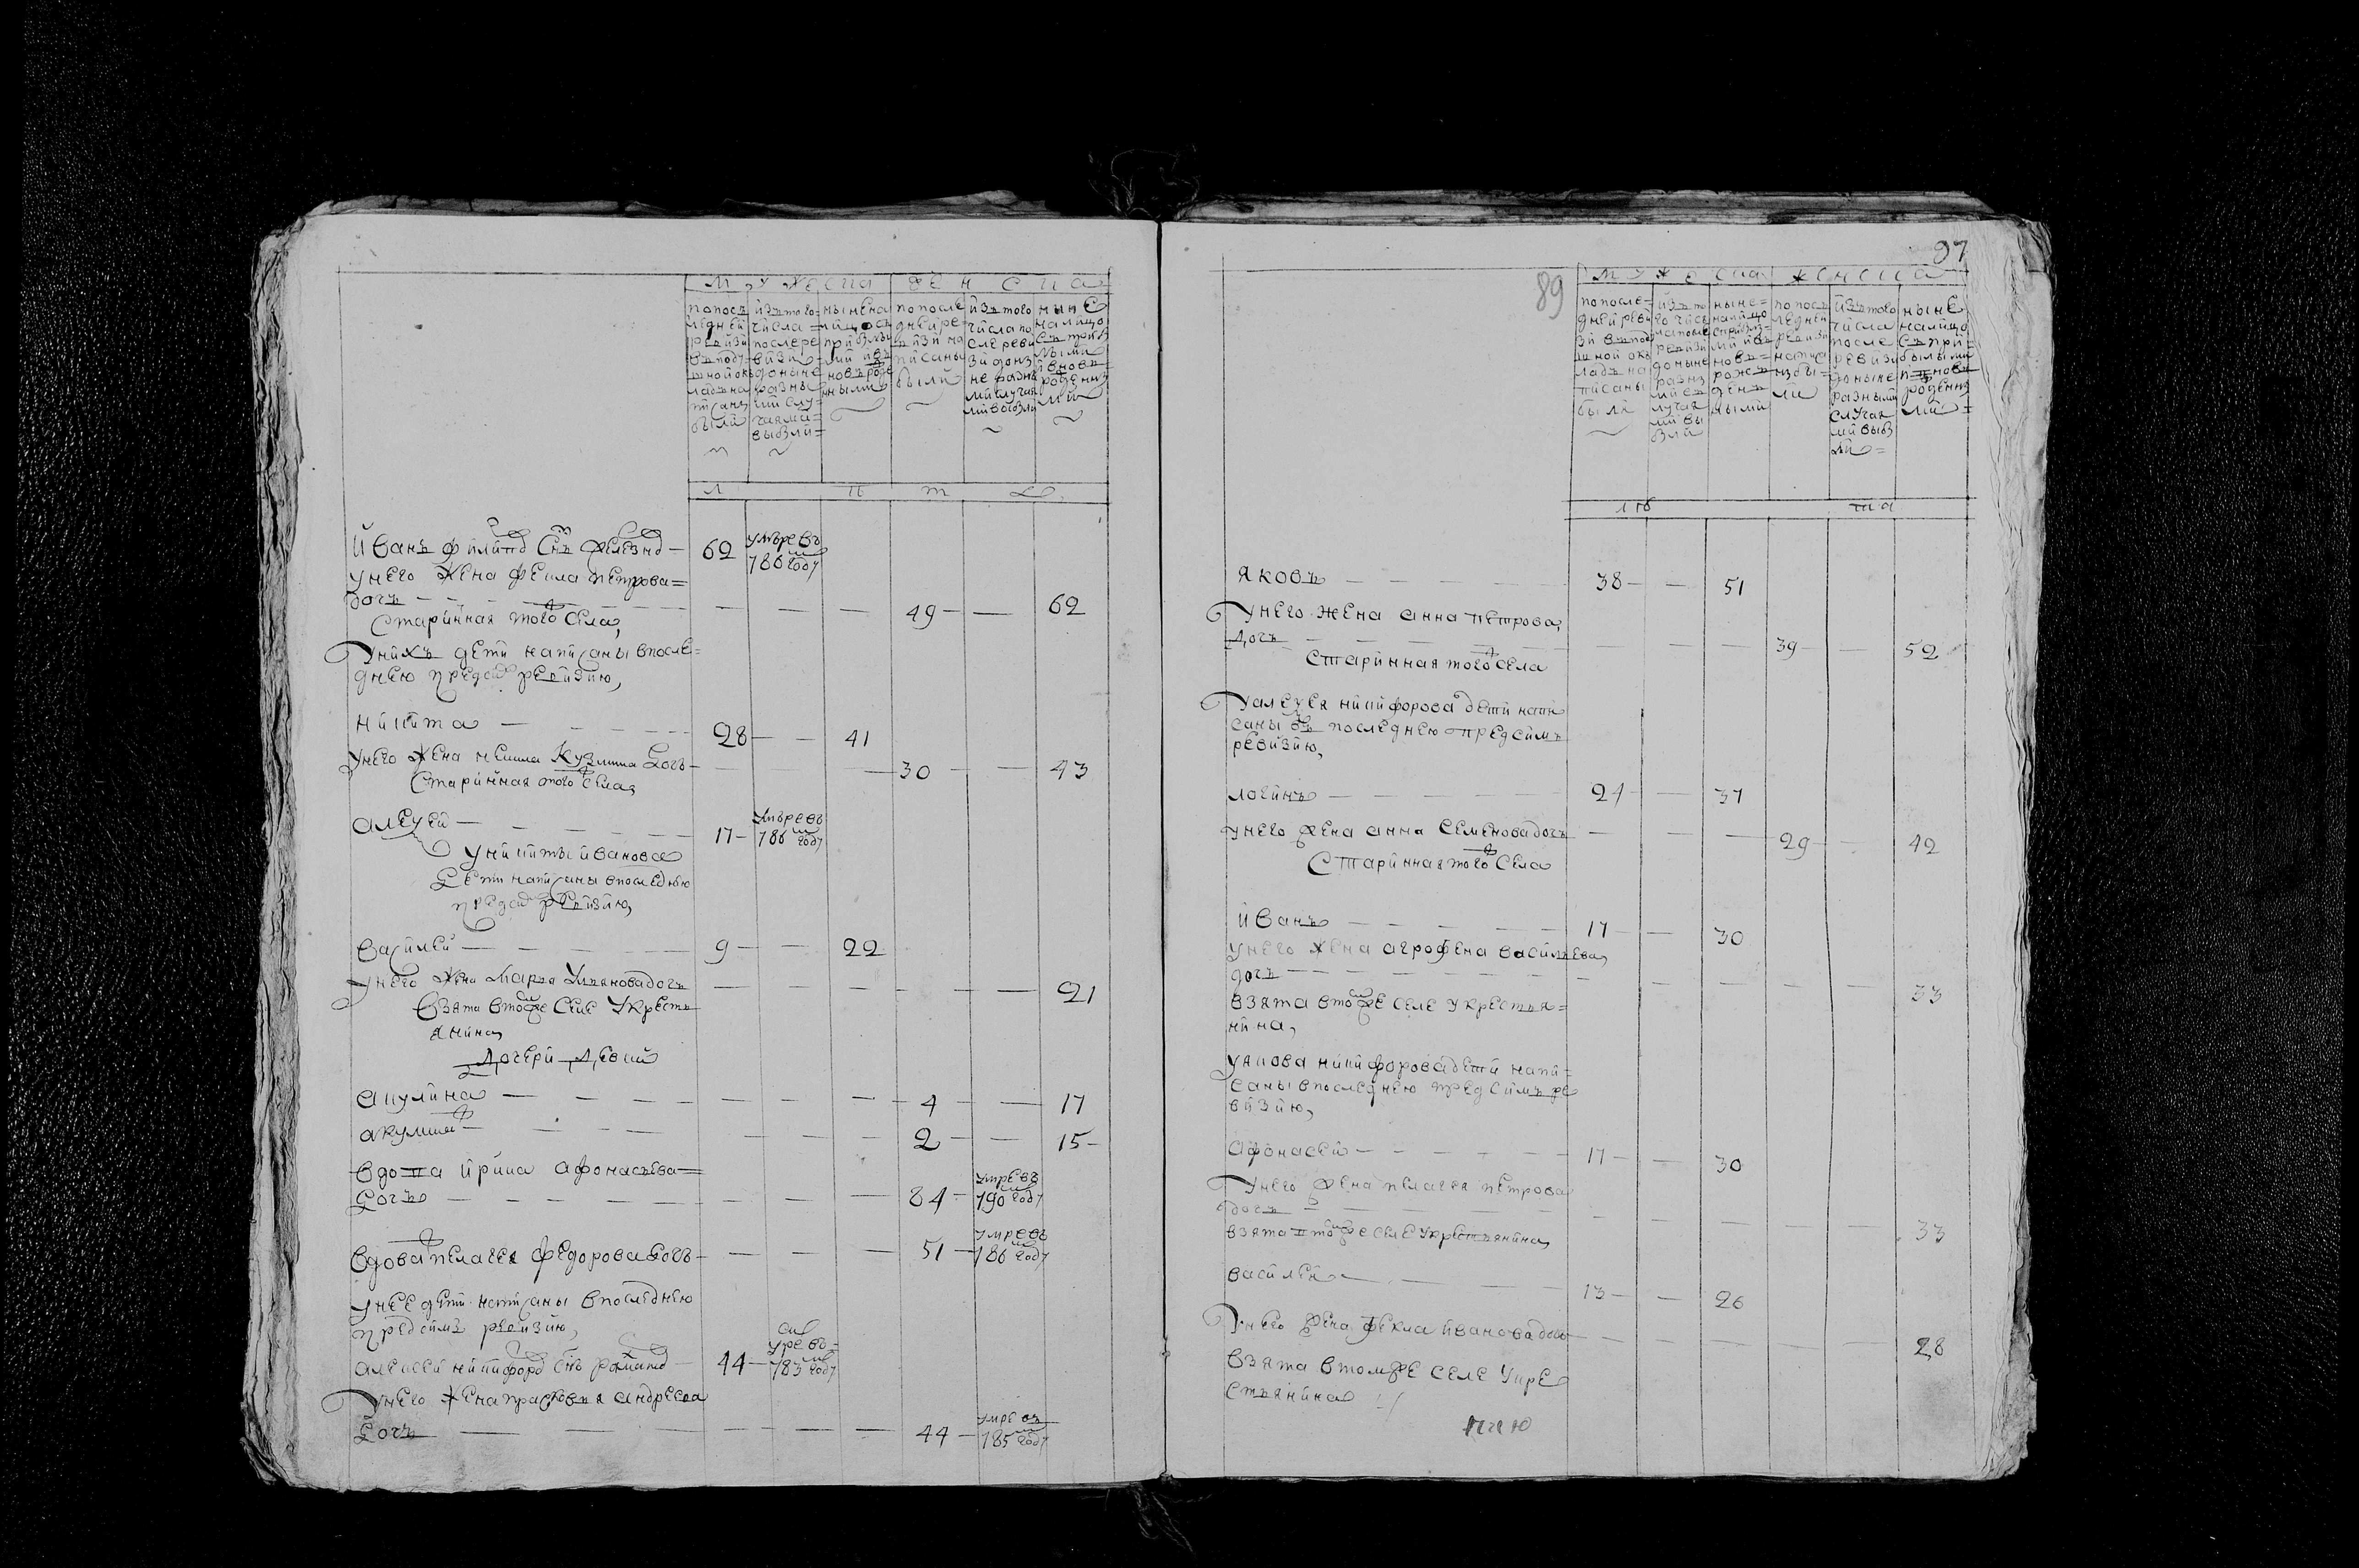 мужеска женска
попослѣдней ревизи въподушной окладъ написаны были
изътого числа послеревизи доныне разными случаями выбыли
ныне налицо съ прибылыми ивновь рожденными
попоследней ревизи написаны были
изътого числа после ревизи доныне разными случаями выбыли
ныне налицо съприбылыми ивновь рожденными
лѣта
Иванъ Филипов снъ
62
умревъ
786м году
унего жена фекла петрова
дочь
49
62
Старинная того села
Унихъ дети написаны впосле=
днею предсим ревизию,
никита
28
41
унего жена Кузмина дочь
30
43
Старинная того села
алексей
17
умревъ
786м году
уникиты иванова
дети написаны впоследнюю
предсим ревизию,
василей
9
22
унего жена Марья дочь
21
взята втомже селе укресть
янина
Дочери девки
акулина
4
17
акулина
2
15
вдова афонасьева
дочь
84
умре въ
790м году
вдова пелагея федорова дочь
51
умре въ
786м году
унее дети написаны впоследнею
предсимъ ревизию,
алексей никифоров снъ романов
44
783м году
унего жена прасковья андреева
дочь
44
умре въ
785м году
97
89
мужеска женска
попоследней ревизи въподушной окладъ написаны были
изътого числа после ревизи доныне разными случаями выбыли
ныне налицо сприбылыми ивновь рожденными
попоследней ревизи написаны были
изътого числа после ревизи доныне разными случаями выбыли
ныне налицо съприбылыми ивновь рожденными
лѣта
яковъ
38
51
унего жена анна петрова
дочь
39
52
старинная того села
уалексея никифорова дети напи
саны въ последнею предсимъ
ревизию,
логинъ
24
37
унего жена анна семенова дочь
29
42
Старинная того села
иванъ
17
30
унего жена агрофена васильева
дочь
33
взята втомже селе укрестья=
нина,
уякова никифорова дети напи=
саны впоследнею предсимъ ре
визию,
афонасей
17
30
унего жена пелагея петрова
дочь
33
взята втомже селе укрестьянина
василей
13
26
Унего жена фекла иванова дочь
28
взята втомже селе укре
стьянина